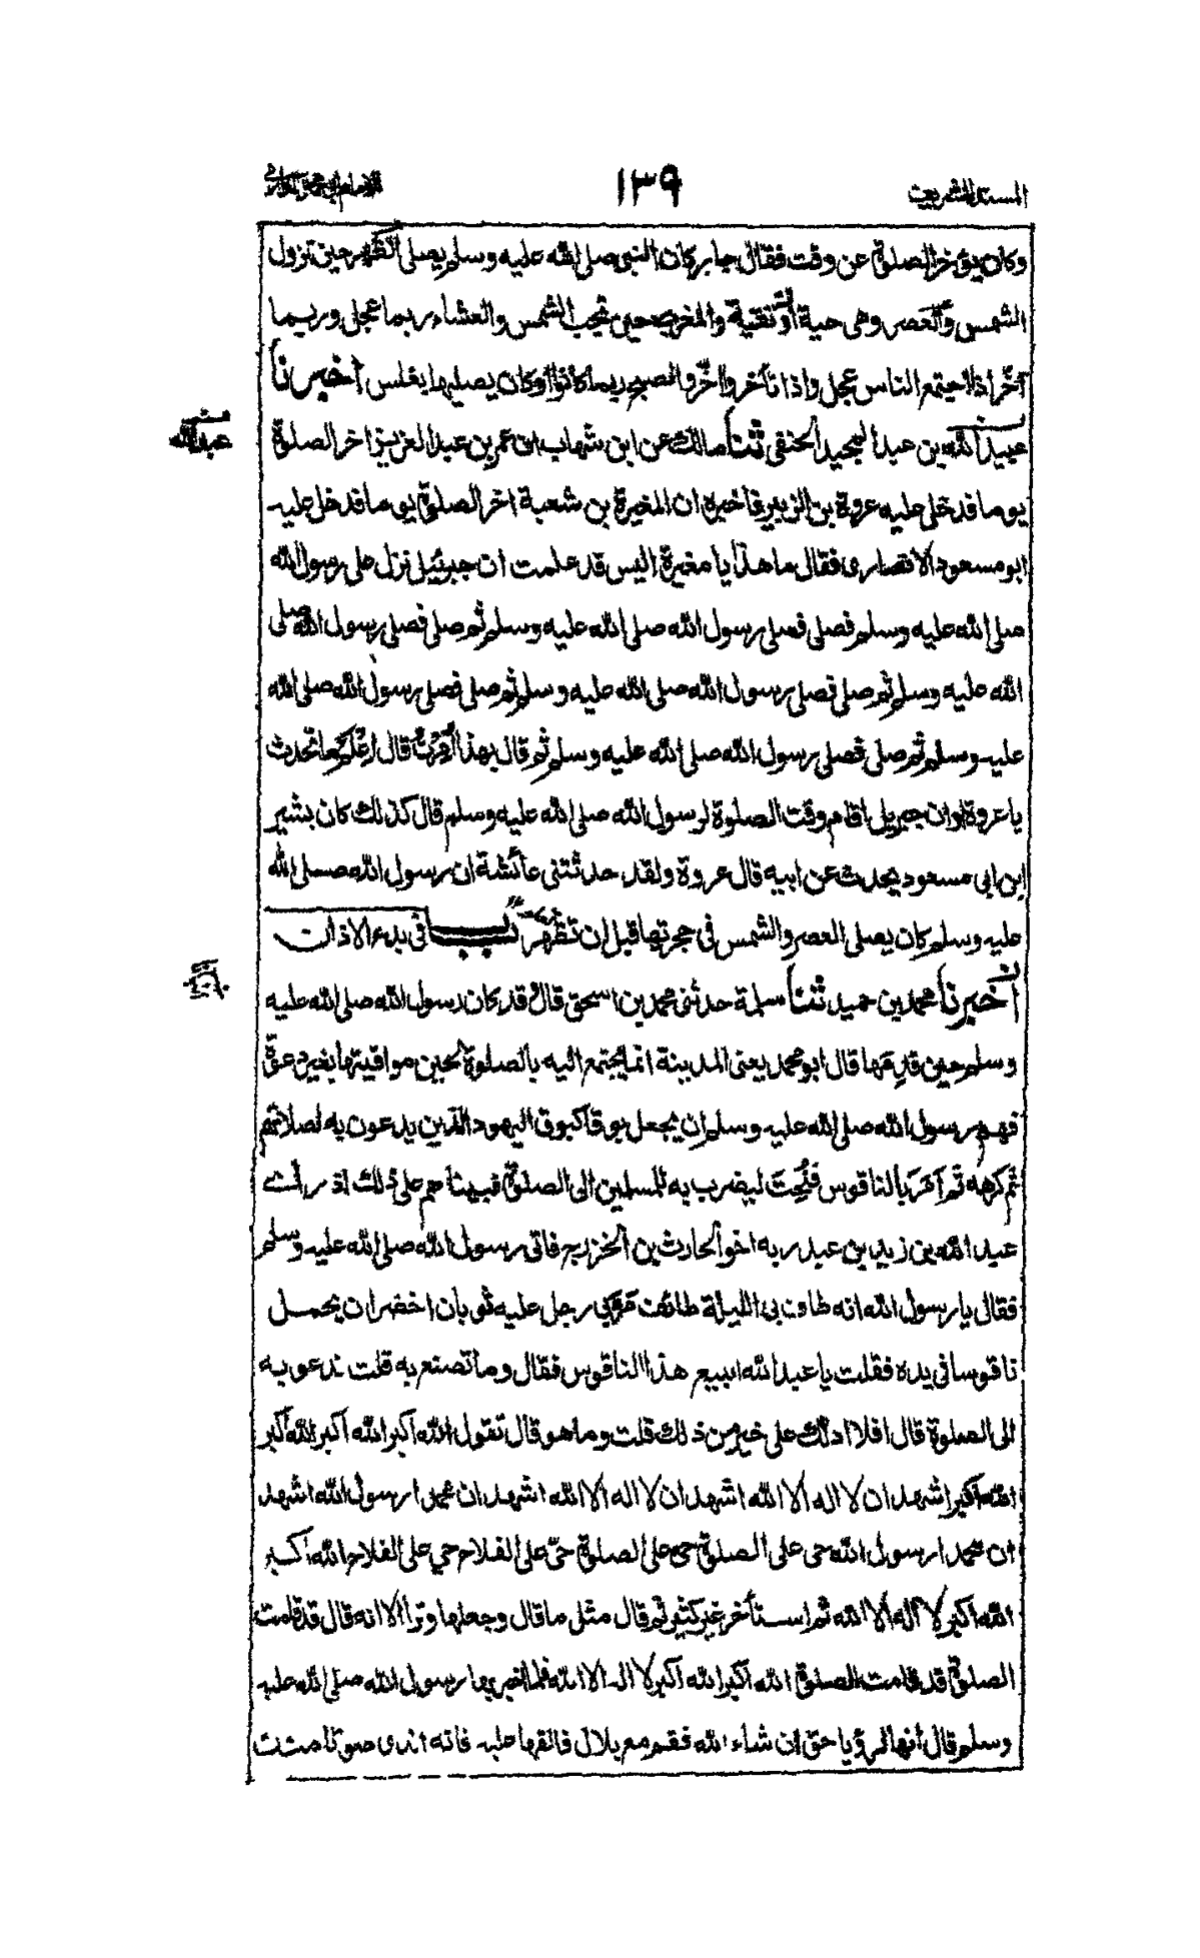 المسند الشريف ١٣٩ للامام ابي محمد الدارمي
وكان يؤخر الصلوة عن وقت فقال جابر كان النبي صلى الله عليه وسلم يصلي الظهر حين تزول
الشمس والعصر وهي حية او نقية والمغرب حين تجب الشمس والعشاء ربما عجل وربما
أخّر اذا اجتمع الناس عجل واذا تأخروا اخّر والصبح ربما كانوا او كان يصليها بغلس اخبرنا
عبيد الله بن عبد المجيد الحنفي ثنا مالك عن ابن شهاب ان عمر بن عبد العزيز اخر الصلوة
عبد الله
يوما فدخل عليه عروة بن الزبير فاخبره ان المغيرة بن شعبة اخر الصلوة يوما فدخل عليه
ابو مسعود الانصاري فقال ما هذا يا مغيرة اليس قد علمت ان جبرئيل نزل على رسول الله
صلى الله عليه وسلم فصلى فصلى رسول الله صلى الله عليه وسلم ثم صلى فصلى رسول الله صلى
الله عليه وسلم ثم صلى فصلى رسول الله صلى الله عليه وسلم ثم صلى فصلى رسول الله صلى الله
عليه وسلم ثم صلى فصلى رسول الله صلى الله عليه وسلم ثم قال بهذا اُمِرْتُ قال اعْلَم ما تحدث
يا عروة او ان جبريل اقام وقت الصلوة لرسول الله صلى الله عليه وسلم قال كذلك كان بشير
ابن ابي مسعود يحدث عن ابيه قال عروة ولقد حدثتني عائشة ان رسول الله صلى الله
عليه وسلم كان يصلي العصر والشمس في حجرتها قبل ان تظهر باب في بدء الاذان
اخبرنا محمد بن حميد ثنا سلمة حدثني محمد بن اسحق قال قد كان رسول الله صلى الله عليه
وسلم حين قدمها قال ابو محمد يعني المدينة انما يجتمع اليه بالصلوة لحين مواقيتها بغير دعوة
فهم رسول الله صلى الله عليه وسلم ان يجعل بوقا كبوق اليهود الذين يدعون به لصلاتهم
ثم كرهه ثم اَمَرَ بالناقوس فنُحِتَ ليضرب به للمسلمين الى الصلوة فبينا هم على ذلك اذ رأى
عبد الله بن زيد بن عبد ربه اخو الحارث بن الخزرج فاتى رسول الله صلى الله عليه وسلم
فقال يا رسول الله انه طاف بي الليلة طائف مَرَّ بي رجل عليه ثوبان اخضران يحمل
ناقوسا في يده فقلت يا عبد الله اتبيع هذا الناقوس فقال وما تصنع به قلت ندعو به
الى الصلوة قال افلا ادلك على خير من ذلك قلت وما هو قال تقول الله اكبر الله اكبر الله اكبر
الله اكبر اشهد ان لا اله الا الله اشهد ان لا اله الا الله اشهد ان محمدا رسول الله اشهد
ان محمدا رسول الله حي على الصلوة حي على الصلوة حيّ على الفلاح حي على الفلاح الله اكبر
الله اكبر لا اله الا الله ثم استأخر غير كثير ثم قال مثل ما قال وجعلها وترا الا انه قال قد قامت
الصلوة قد قامت الصلوة الله اكبر الله اكبر لا اله الا الله فلما اخبر بها رسول الله صلى الله عليه
وسلم قال انها لرؤيا حق ان شاء الله فقم مع بلال فالقها عليه فانه اندى صوتا منك